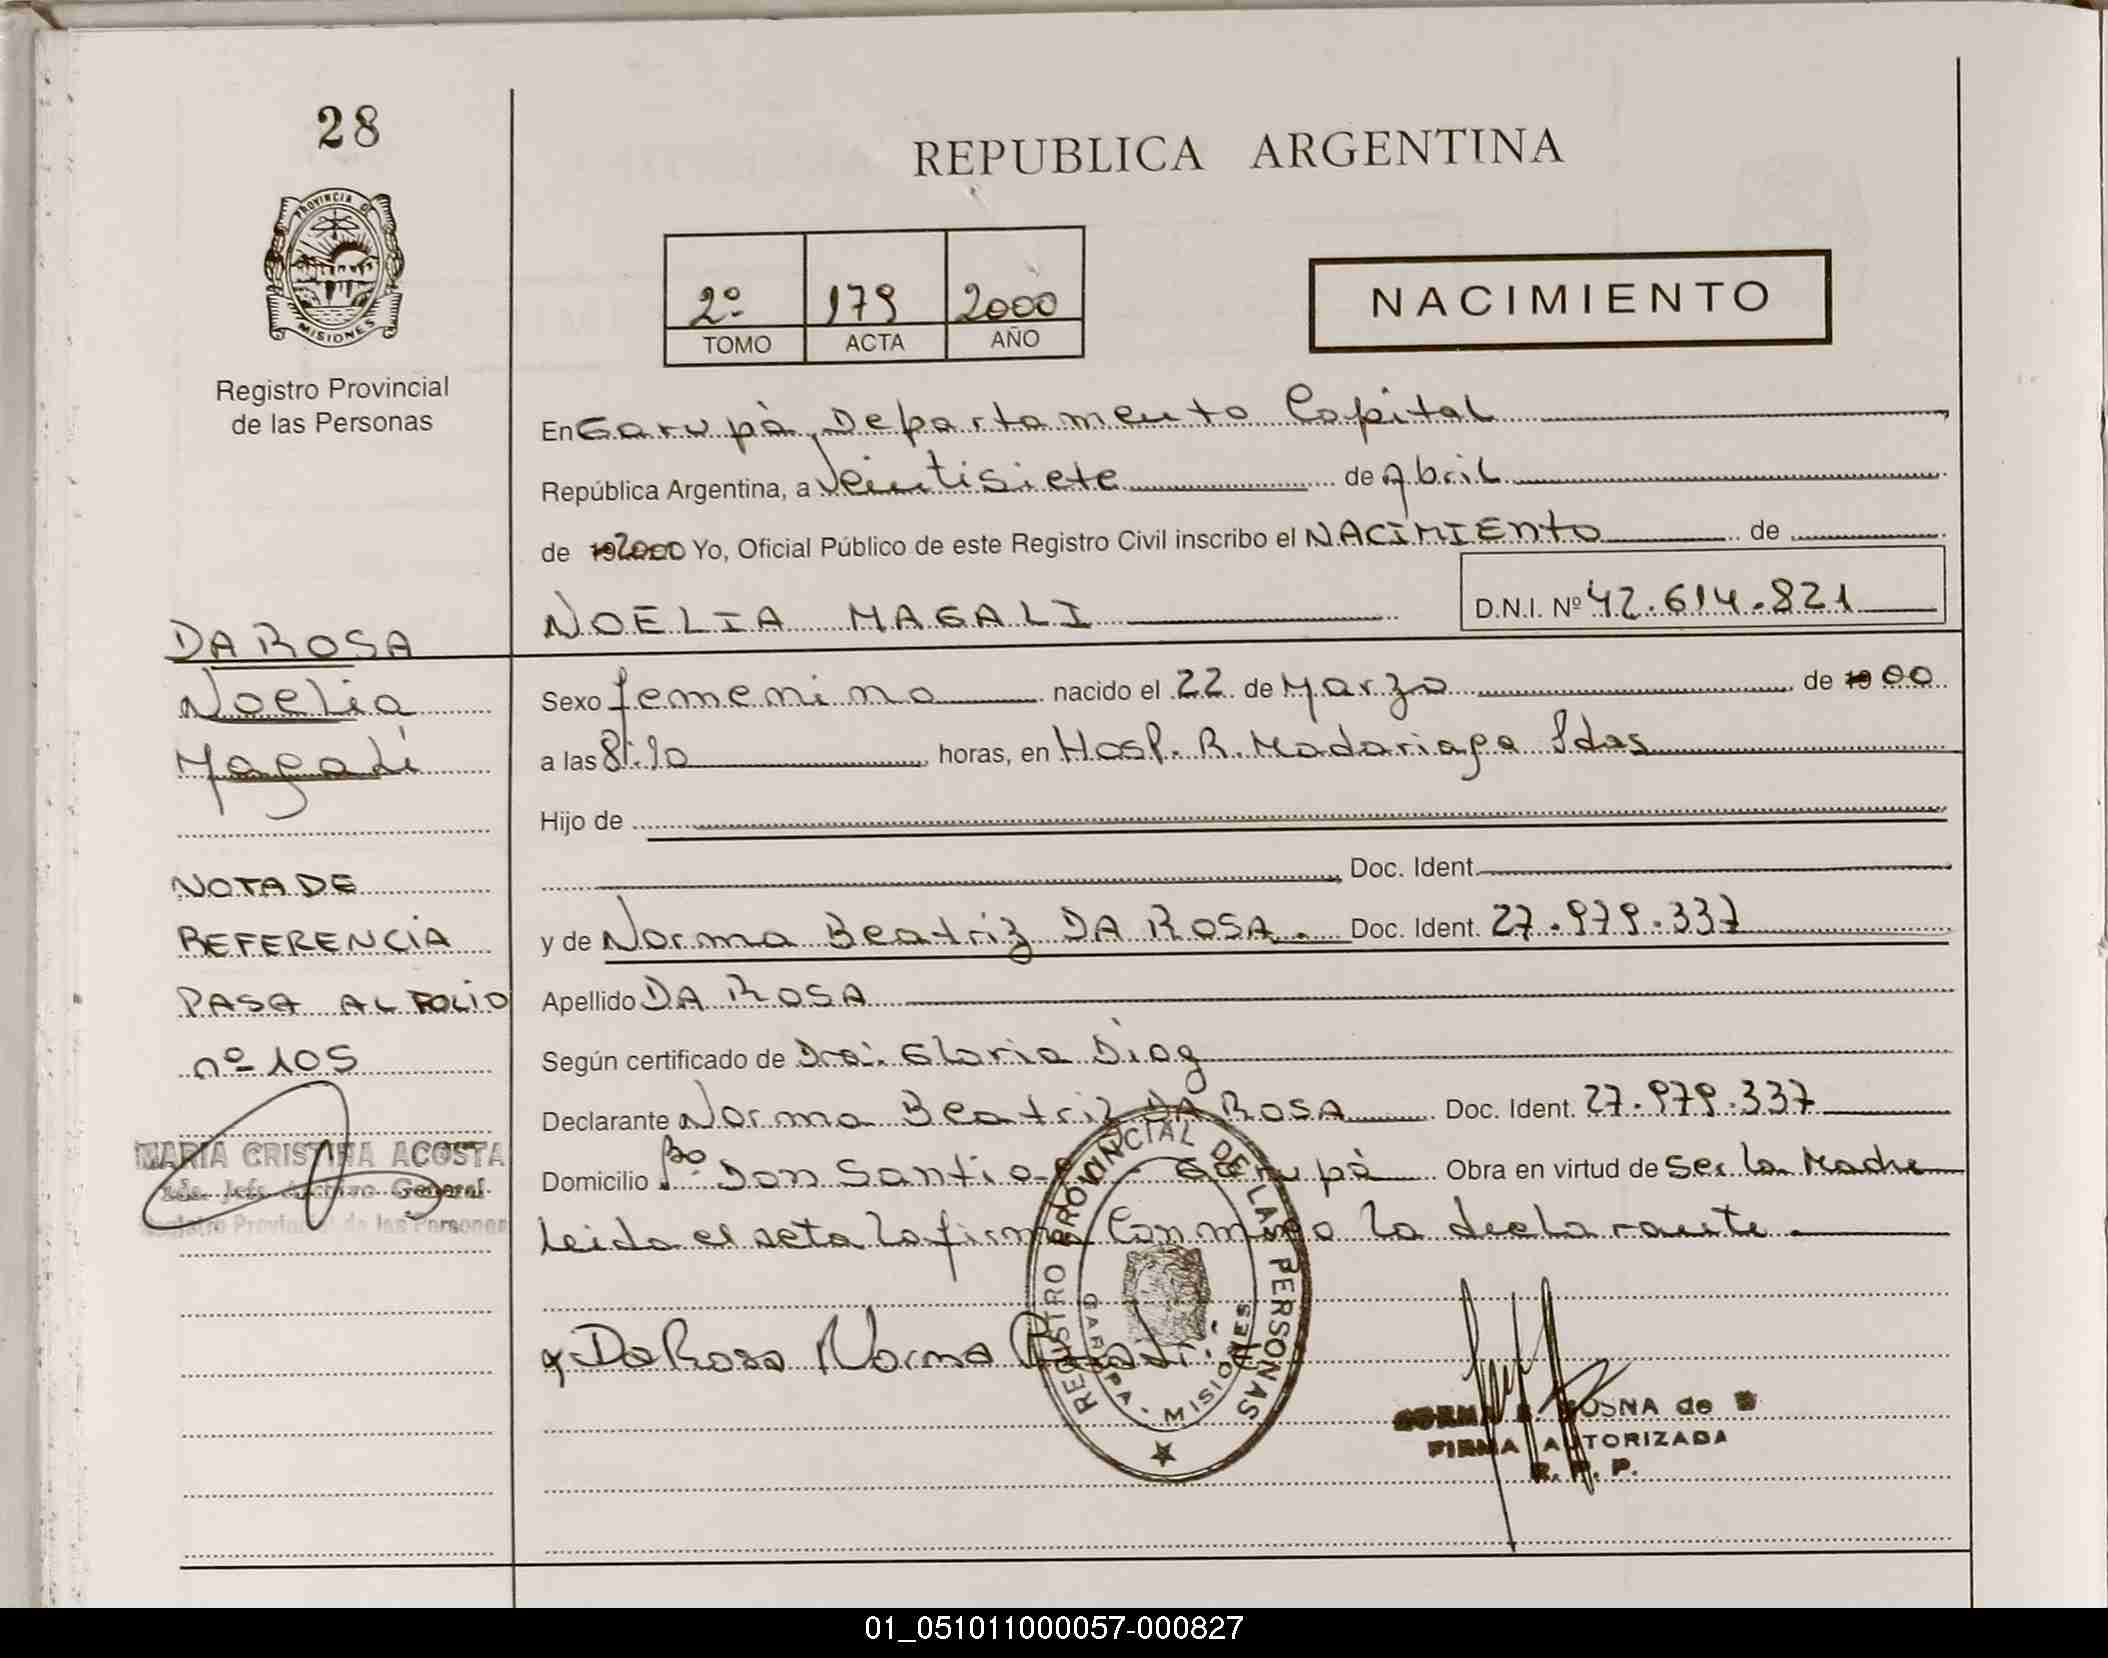 28
PROVINCIA DE
MISIONES
Registro Provincial
de las Personas
REPUBLICA ARGENTINA
2º 179 2000
TOMO ACTA AÑO
NACIMIENTO
En Garupà, Departamento Capital
República Argentina, a Veintisiete de Abril
de 19 2000 Yo, Oficial Público de este Registro Civil inscribo el NACIMIENTO de
NOELIA MAGALI D.N.I. Nº 42.614.821
Sexo femenino nacido el 22 de Marzo de 19 00
a las 8:10 horas, en Hosp. R. Madariaga Pdas
Hijo de
Doc. Ident.
y de Norma Beatriz DA ROSA. Doc. Ident. 27.979.337
Apellido DA ROSA
Según certificado de Dra: Gloria Diaz
Declarante Norma Beatriz DA ROSA Doc. Ident. 27.979.337
Domicilio Bº Don Santiago Garupà Obra en virtud de ser la Madre
Leida el acta la firma Conmigo la declarante
DaRosa Norma
REGISTRO PROVINCIAL DE LAS PERSONAS
GARUPA - MISIONES
de
FIRMA AUTORIZADA
R. P. P.
DA ROSA
Noelia
Magalì
NOTA DE
REFERENCIA
PASA AL FOLIO
nº 105
MARIA CRISTINA ACOSTA
Jefe Archivo General
Registro Provincial de las Personas
01_051011000057-000827